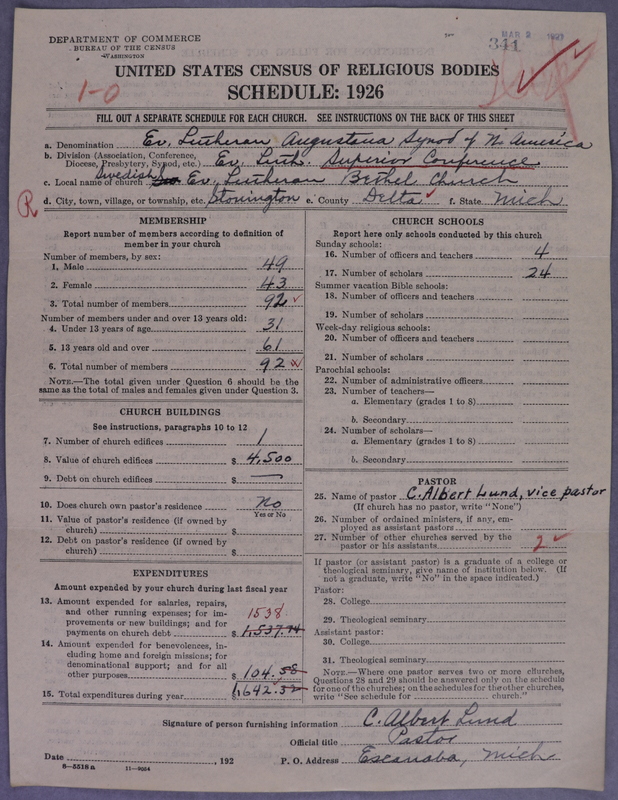 DEPARTMENT OF COMMERCE
BUREAU OF THE CENSUS
WASHINGTON
MAR 2 1927
341
1-0
UNITED STATES CENSUS OF RELIGIOUS BODIES
SCHEDULE: 1926
FILL OUT A SEPARATE SCHEDULE FOR EACH CHURCH. SEE INSTRUCTIONS ON THE BACK OF THIS SHEET
a. Denomination Ev. Lutheran Augustana Synod of N. America
b. Division (Association, Conference, Diocese, Presbytery, Synod, etc.) Ev. Luth. Superior Conference
c. Local name of church Swedish Ev. Lutheran Bethel Church
R d. City, town, village, or township, etc. Stonington e. County Delta f. State Mich
MEMBERSHIP
Report number of members according to definition of
member in your church
Number of members, by sex:
1. Male 49
2. Female 43
3. Total number of members 92
Number of members under and over 13 years old:
4. Under 13 years of age 31
5. 13 years old and over 61
6. Total number of members 92
NOTE.—The total given under Question 6 should be the
same as the total of males and females given under Question 3.
CHURCH BUILDINGS
See instructions, paragraphs 10 to 12
7. Number of church edifices 1
8. Value of church edifices $ 4,500
9. Debt on church edifices $ —
10. Does church own pastor's residence? No
Yes or No
11. Value of pastor's residence (if owned by
church) $
12. Debt on pastor's residence (if owned by
church) $
EXPENDITURES
Amount expended by your church during last fiscal year
13. Amount expended for salaries, repairs,
and other running expenses; for im-
provements or new buildings; and for 1538
payments on church debt $ 1,537.74
14. Amount expended for benevolences, in-
cluding home and foreign missions; for
denominational support; and for all
other purposes $ 104.58
15. Total expenditures during year $ 1,642.32
CHURCH SCHOOLS
Report here only schools conducted by this church
Sunday schools:
16. Number of officers and teachers 4
17. Number of scholars 24
Summer vacation Bible schools:
18. Number of officers and teachers
19. Number of scholars
Week-day religious schools:
20. Number of officers and teachers
21. Number of scholars
Parochial schools:
22. Number of administrative officers
23. Number of teachers—
a. Elementary (grades 1 to 8)
b. Secondary
24. Number of scholars—
a. Elementary (grades 1 to 8)
b. Secondary
PASTOR
25. Name of pastor C. Albert Lund, vice pastor
(If church has no pastor, write "None")
26. Number of ordained ministers, if any, em-
ployed as assistant pastors
27. Number of other churches served by the
pastor or his assistants 2
If pastor (or assistant pastor) is a graduate of a college or
theological seminary, give name of institution below. (If
not a graduate, write "No" in the space indicated.)
Pastor:
28. College
29. Theological seminary
Assistant pastor:
30. College
31. Theological seminary
NOTE.—Where one pastor serves two or more churches,
Questions 28 and 29 should be answered only on the schedule
for one of the churches; on the schedules for the other churches,
write "See schedule for church."
Signature of person furnishing information C. Albert Lund
Official title Pastor
Date , 192 P. O. Address Escanaba, Mich
8—5518a 11—9054